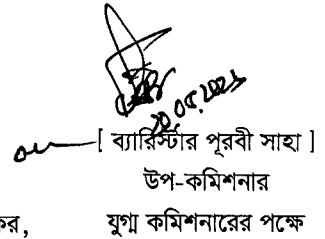 [ ব্যারিস্টার পূরবী সাহা ]
উপ-কমিশনার
কর, যুগ্ম কমিশনারের পক্ষে